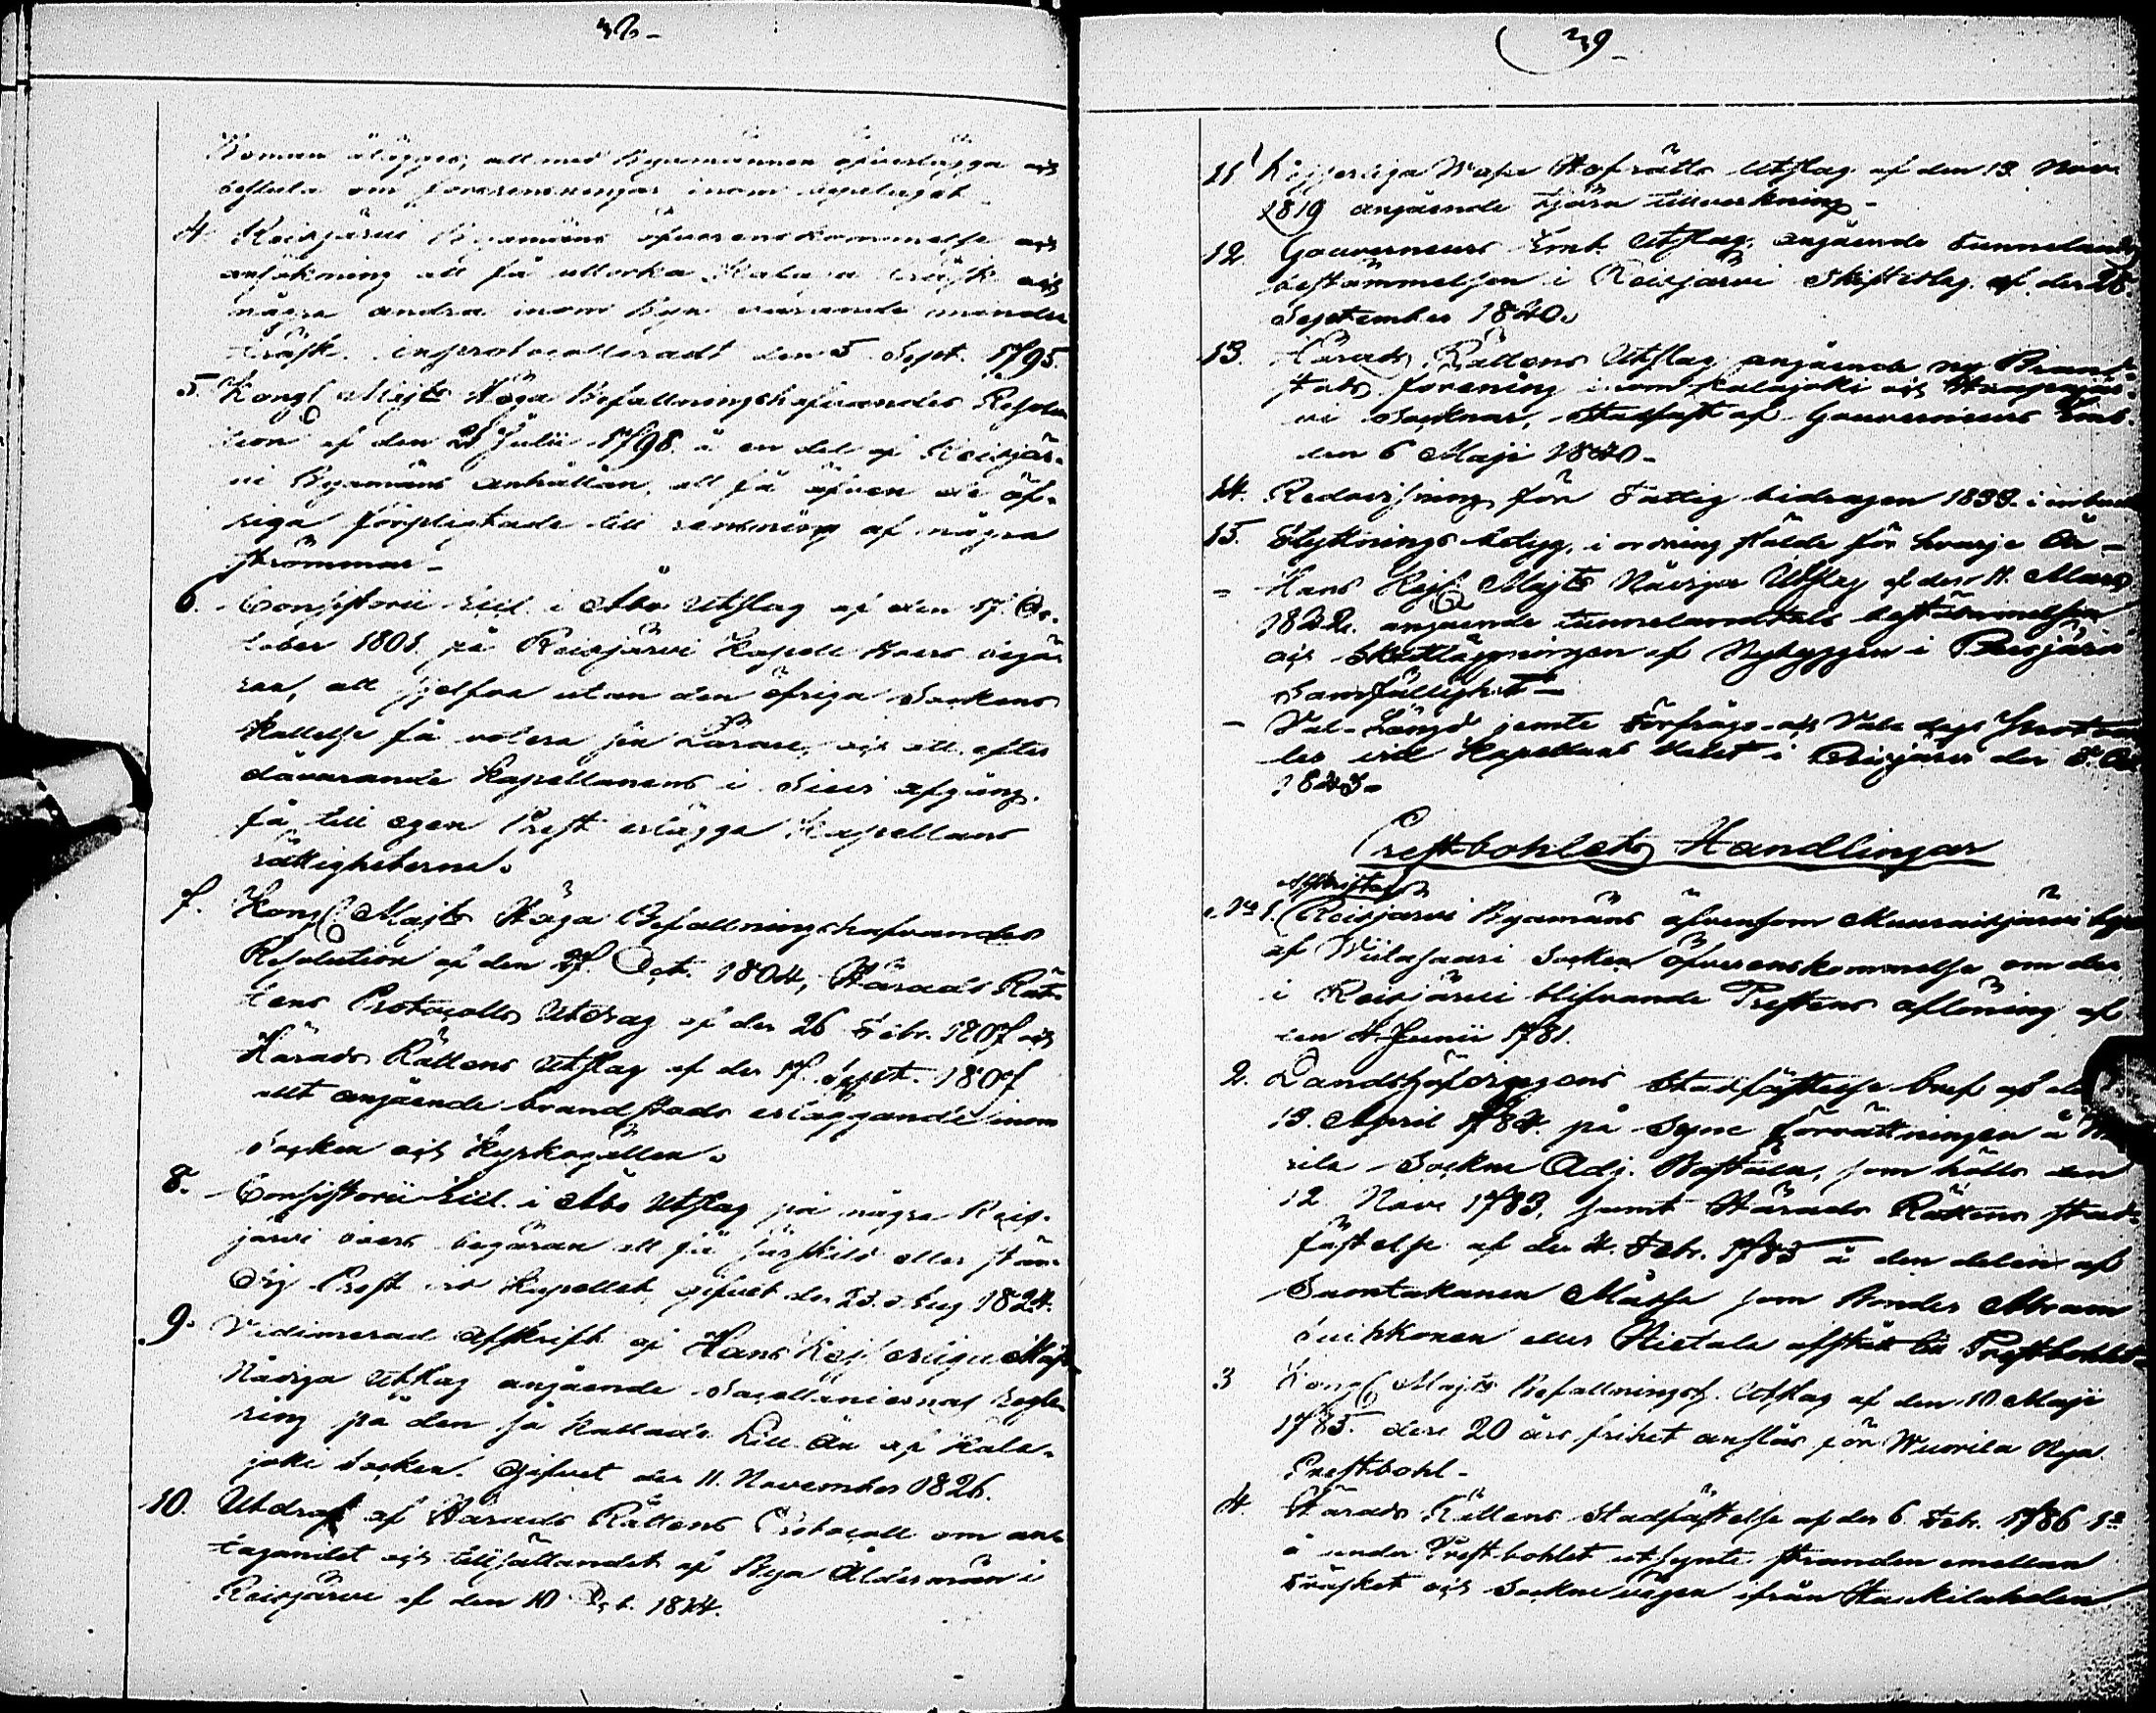 38-
Boman ålägges, att med Byamännen öfverlägga och
besluta om forsrensningar inom
4. Reisjärvi Byamäns öfverenskommelse och
ansökning att få uttorka Kalaja träsk och
några andra inom Byn varande mindre
träsk. inprotocolleradt den 5 Sept. 1795.
5. Kongl. Majts Höga Befallningshafvandes Resolu
tion af den 21 Julii 1798. å en del af Reisjär-
vi Byamäns anhållan, att få äfven de öf-
riga förpligtade till rensning af några
strömmar-
6. Consistorii Eccl. i Åbo Utslag af den 17. Oc-
tober 1801 på Reisjärvi Kapell boers begä
ran, att sjelfva utan den öfriga Sockens
kallelse få votera sin Lärare, och att efter
dåvarande Kapellanens i Sievi afgång.
få till egen Prest erlägga Kapellans
rättigheterna.
7. Kongl. Majts Höga Befallningshafvandes
Resolution af den 27. Oct. 1804, Härads Rät-
tens Protocolls Utdrag af den 26 Febr. 1807 och
Härads Rättens Utslag af den 17. Sept. 1807
allt angående brandstods erläggande inom
Socken och Kyrkogällen.
8. Consistorii Eccl. i Åbo Utslag på några Reis-
järvi boers begäran att få särskild eller stän-
dig Prest vid Kapellet, gifvet den 23. Aug 1824.
9. Vidimerad Afskrift af Hans Kejserliga Majts
Nådiga Utslag angående Sacellaniernas Regle-
ring på den så kallade Lill ån af Kala-
joki Socken. Gifvet den 11. November 1826.
10. Utdrag af Härads Rättens Protocoll om an-
tagandet och tillsättandet af Bya Ålderman i
Reisjärvi af den 10 Oct. 1844.
39-
11. Kejserliga Wasa Hofrätts Utslag af den 13 Nov
1819 angående tjäru tillverkning-
12. Gouverneurs Emb. Utslag, angående tunnelands
bestämmelsen i Reisjärvi Skifteslag af den 26.
September 1840.
13. Härads Rättens Utslag angående ny Brand-
stods förening inom Kalajoki och Haapajär-
vi Socknar, stadfäst af Gouverneurs Emb.
den 6 Maji 1840-
14. Redovisning för Fattig bidragen 1833.
15. Flyttnings betyg, i ordning stälde för hvarje År-
- Hans Kejs. Majts Nådiga Utslag af den 11. Mars
1822. angående tunnelandtals bestämmelsen
och Skattläggningen af Nybyggen i Reisjärvi
Samfällighet-
- Val-Längd jemte Förfrågo- och Vals dags Protocol
ler vid Kapellans Valet i Reisjärvi den 5. Oct
1843-
Prestbohlets Handlingar
Afskrifter
No 1. Reisjärvi Byamäns äfvensom Muuraisjärvi bya
af Wiitasaari Socken öfverenskommelse om den
i Reisjärvi blifvande Prestens aflöning af
den 4 Junii 1781.
2. Landshöfdingens Stadfästelse bref af den
13. April 1784. på Syne förrättningen å
rila Sockne Adj. Boställe, som hölls den
12 Nov. 1783, samt Härads Rättens stad-
fästelse af den 4. Febr. 1785 å den delen af
Suontakanen Måssa som Bonden Abram
Huikkonen eller Hietala afstått till Prestbohlet-
3 Kongl. Majts Befallningsh. Utslag af den 10 Maji
1785. der 20 års frihet anslås för Wuorila Nya
Prestbohl-
4. Härads Rättens Stadfästelse af den 6. Febr. 1786 1o
å under Prestbohlet utsynte stranden emellan
träsket och Sockne vägen ifrån Haukilahden